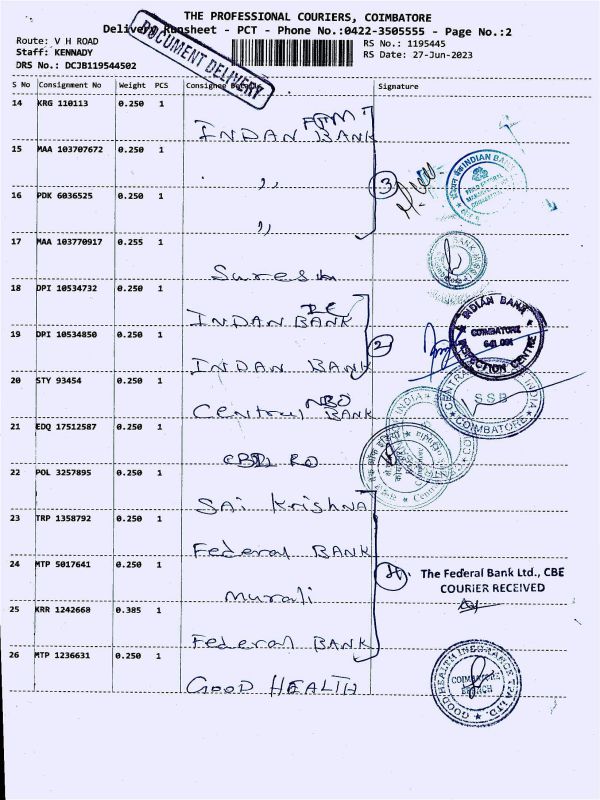 THE PROFESSIONAL COURIERS, COIMBATORE
Delivery Runsheet - PCT - Phone No.:0422-3505555 - Page No.:2
DOCUMENT DELIVERY
Route: V H ROAD
Staff: KENNADY
DRS No.: DCJB119544502
RS No.: 1195445
RS Date: 27-Jun-2023
S No Consignment No Weight PCS Consignee Signature
14 KRG 110113 0.250 1
INDAN BANK
15 MAA 103707672 0.250 1
,,
16 PDK 6036525 0.250 1
,,
3
INDIAN BANK
17 MAA 103770917 0.255 1
Suresh
18 DPI 10534732 0.250 1
INDAN BANK
19 DPI 10534850 0.250 1
INDAN BANK
2
INDIAN BANK
COIMBATORE
641 001
INSPECTION CENTRE
20 STY 93454 0.250 1
Central NBO BANK
SSB
COIMBATORE
21 EDQ 17512587 0.250 1
RO
22 POL 3257895 0.250 1
SAi Krishna
23 TRP 1358792 0.250 1
Federal BANK
24 MTP 5017641 0.250 1
murali
The Federal Bank Ltd., CBE
COURIER RECEIVED
25 KRR 1242668 0.385 1
Federal BANK
26 MTP 1236631 0.250 1
GOOD HEALTH
GOOD HEALTH INSURANCE TPA LTD.
COIMBATORE
BRANCH